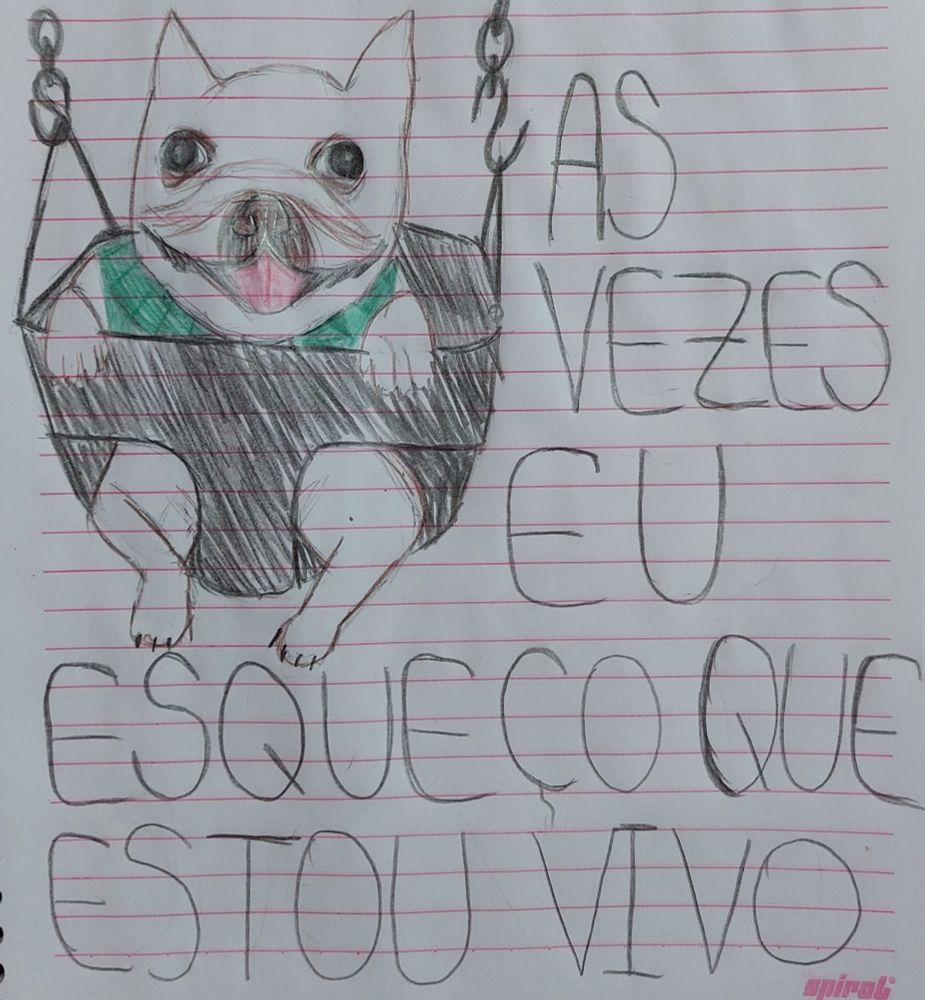 AS
VEZES
EU
ESQUEÇO QUE
ESTOU VIVO
spiral